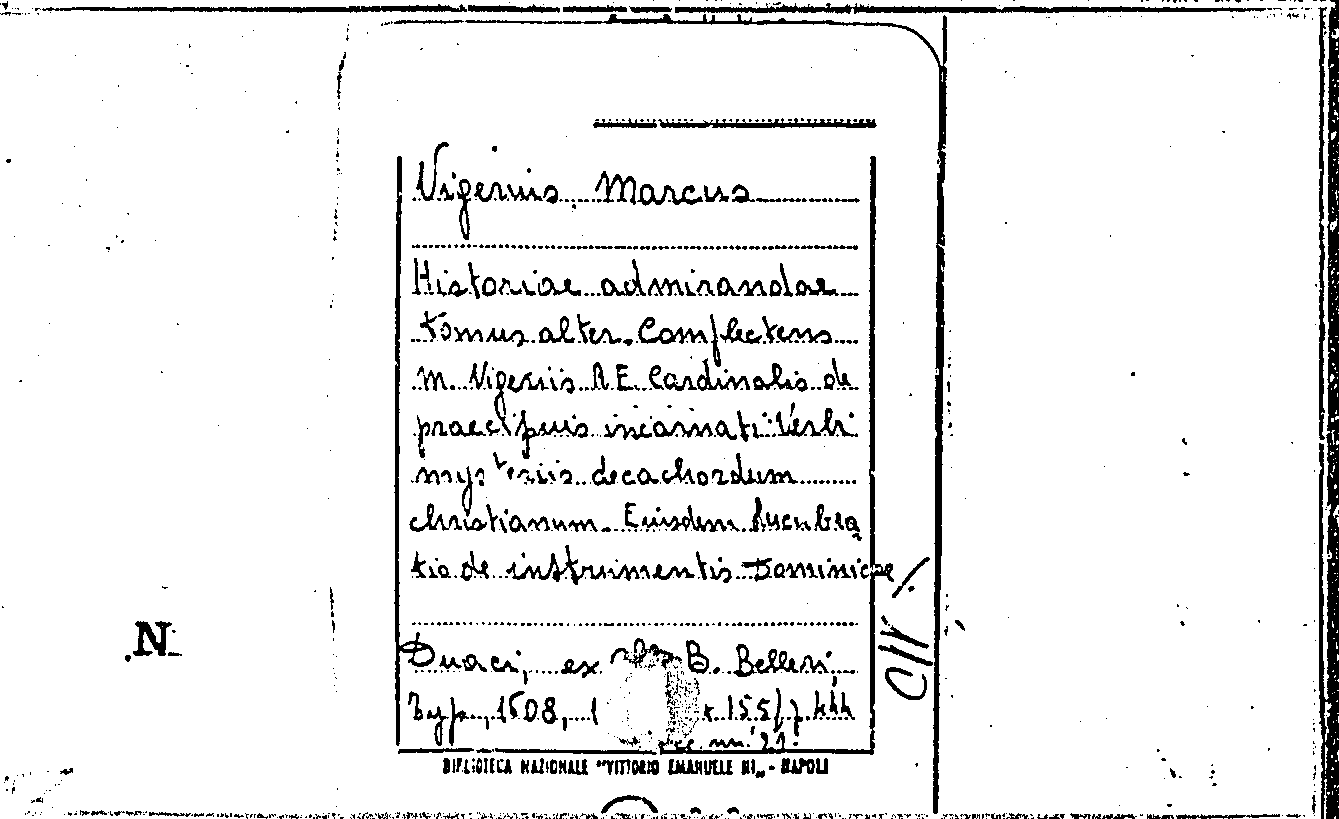 Vigerius, Marcus
Historiae admirandae
tomus alter. Complectens
M. Vigeriis R E. Cardinalis de
praecipuis incarnati Verbi
mysteriis decachordum
christianum. Euisdem lucubra
tio de instrumentis Dominicae
Duaci, ex B. Belleri,
Typ., 1608, 155/
C//
N
BIBLIOTECA NAZIONALE "VITTORIO EMANUELE III" - NAPOLI